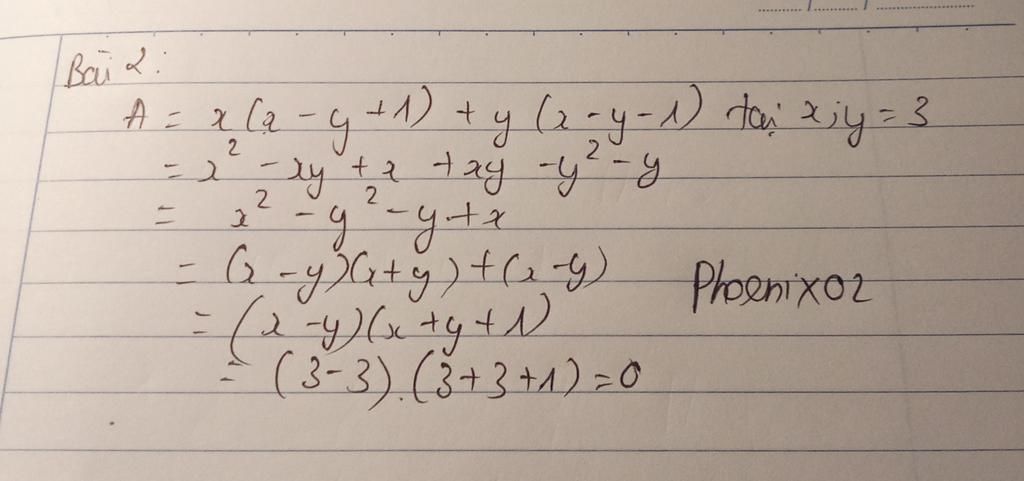 Bài 2:
A = x(x - y + 1) + y (x - y - 1) tại x; y = 3
= x² - xy + x + xy - y² - y
= x² - y² - y + x
= (x - y)(x + y) + (x - y)
Phoenix02
= (x - y)(x + y + 1)
= (3 - 3).(3 + 3 + 1) = 0